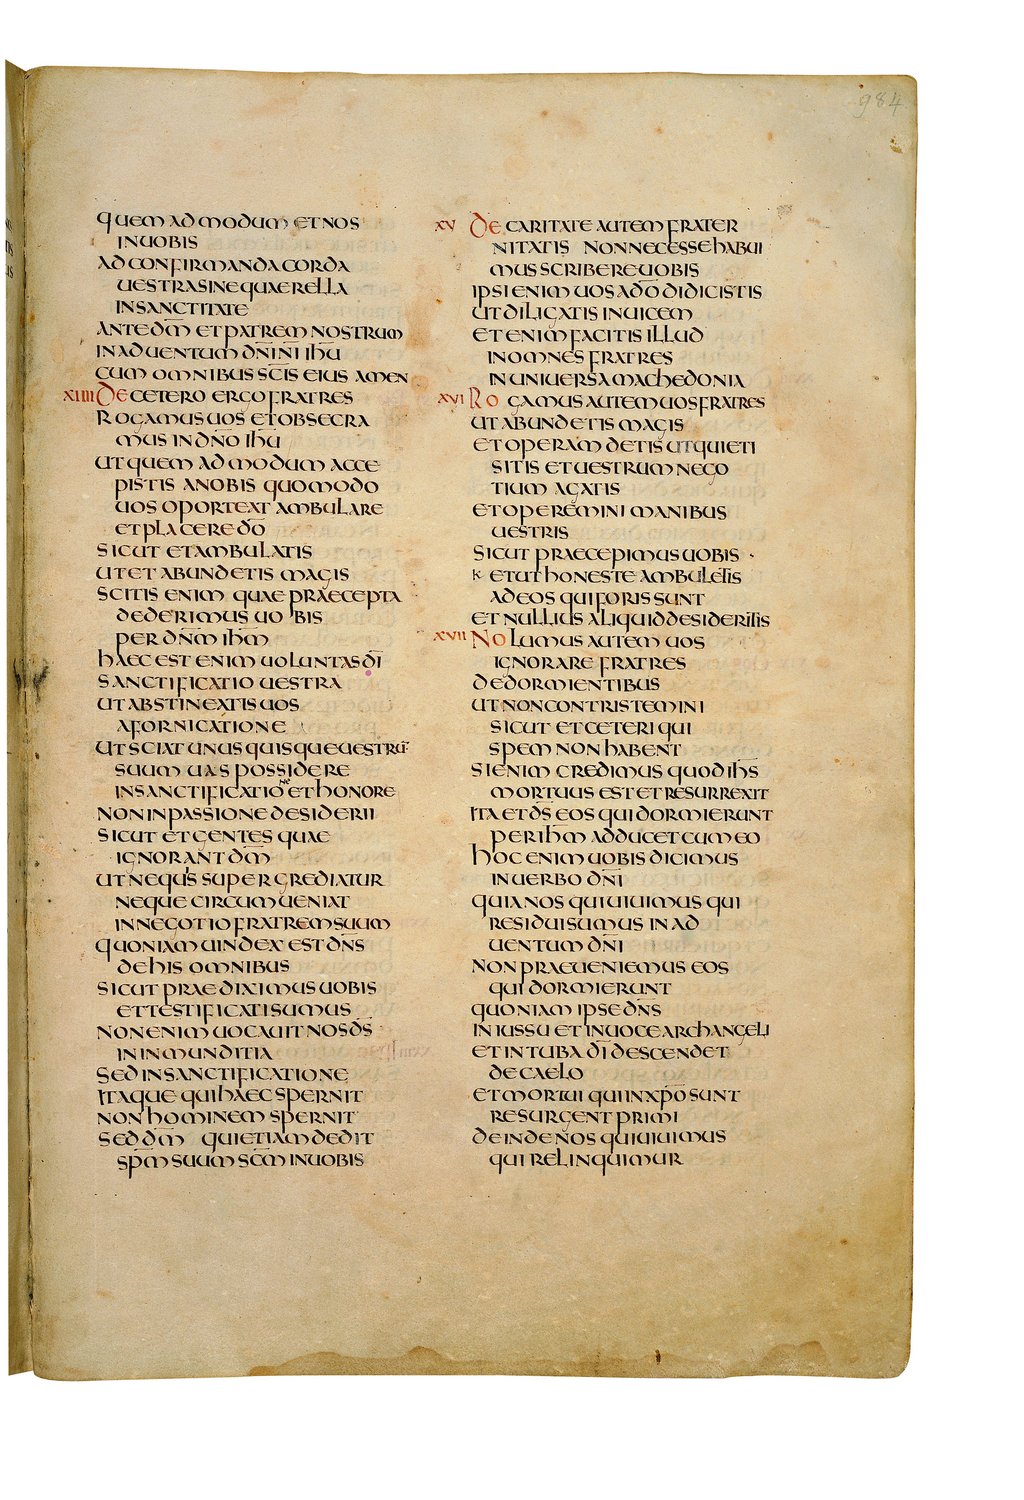 984
quem ad modum et nos
in uobis
ad confirmanda corda
uestra sine quaerella
in sanctitate
ante dm̄ et patrem nostrum
in aduentum dn̄i nī ihū
cum omnibus sc̄is eius amen
xiiii De cetero ergo fratres
rogamus uos et obsecra
mus in dn̄o ihū
ut quem ad modum acce
pistis a nobis quomodo
uos oporteat ambulare
et placere dō
sicut et ambulatis
ut et abundetis magis
scitis enim quae praecepta
dederimus uobis
per dn̄m ihm̄
haec est enim uoluntas dī
sanctificatio uestra
ut abstineatis uos
a fornicatione
ut sciat unusquisque uestrū
suum uas possidere
in sanctificatione et honore
non in passione desiderii
sicut et gentes quae
ignorant dm̄
ut nequis supergrediatur
neque circumueniat
in negotio fratrem suum
quoniam uindex est dn̄s
de his omnibus
sicut praediximus uobis
et testificati sumus
non enim uocauit nos ds̄
in inmunditia
sed in sanctificatione
itaque qui haec spernit
non hominem spernit
sed dm̄ qui etiam dedit
spm̄ suum sc̄m in uobis
xv De caritate autem frater
nitatis non necesse habui
mus scribere uobis
ipsi enim uos a dō didicistis
ut diligatis inuicem
etenim facitis illud
in omnes fratres
in uniuersa machedonia
xvi Rogamus autem uos fratres
ut abundetis magis
et operam detis ut quieti
sitis et uestrum nego
tium agatis
et operemini manibus
uestris
sicut praecepimus uobis
K et ut honeste ambuletis
ad eos qui foris sunt
et nullius aliquid desideritis
xvii Nolumus autem uos
ignorare fratres
de dormientibus
ut non contristemini
sicut et ceteri qui
spem non habent
si enim credimus quod ihs̄
mortuus est et resurrexit
ita et ds̄ eos qui dormierunt
per ihm̄ adducet cum eo
hoc enim uobis dicimus
in uerbo dn̄i
quia nos qui uiuimus qui
residui sumus in ad
uentum dn̄i
non praeueniemus eos
qui dormierunt
quoniam ipse dn̄s
in iussu et in uoce archangeli
et in tuba dī descendet
de caelo
et mortui qui in xpō sunt
resurgent primi
deinde nos qui uiuimus
qui relinquimur